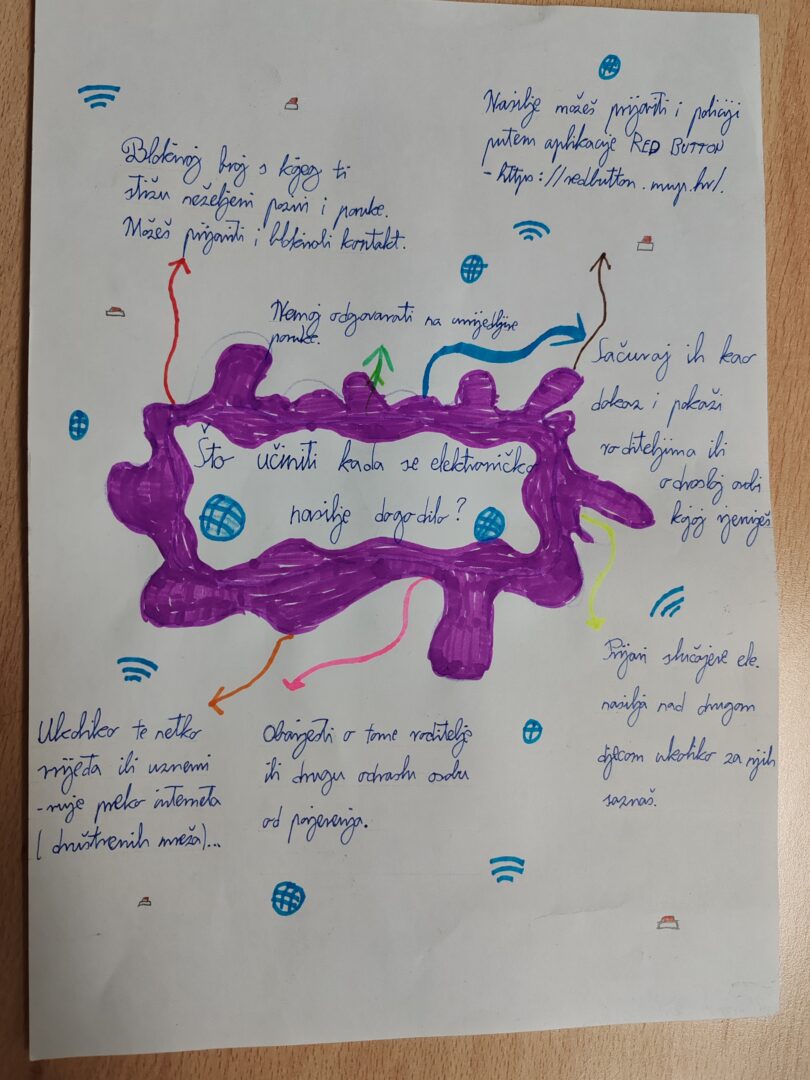 Nasilje možeš prijaviti i policiji
putem aplikacije RED BUTTON
- https://redbutton.mup.hr/.
Blokiraj broj s kojeg ti
stižu neželjeni pozivi i poruke.
Možeš prijaviti i blokirati kontakt.
Nemoj odgovarati na uvrijedljive
poruke.
Sačuvaj ih kao
dokaz i pokaži
roditeljima ili
odrasloj osobi
kojoj vjeruješ
Što učiniti kada se elektroničko
nasilje dogodilo?
Prijavi slučajeve ele.
nasilja nad drugom
djecom ukoliko za njih
saznaš.
Ukoliko te netko
vrijeđa ili uznemi
-ruje preko interneta
(društvenih mreža)...
Obavijesti o tome roditelje
ili drugu odraslu osobu
od povjerenja.